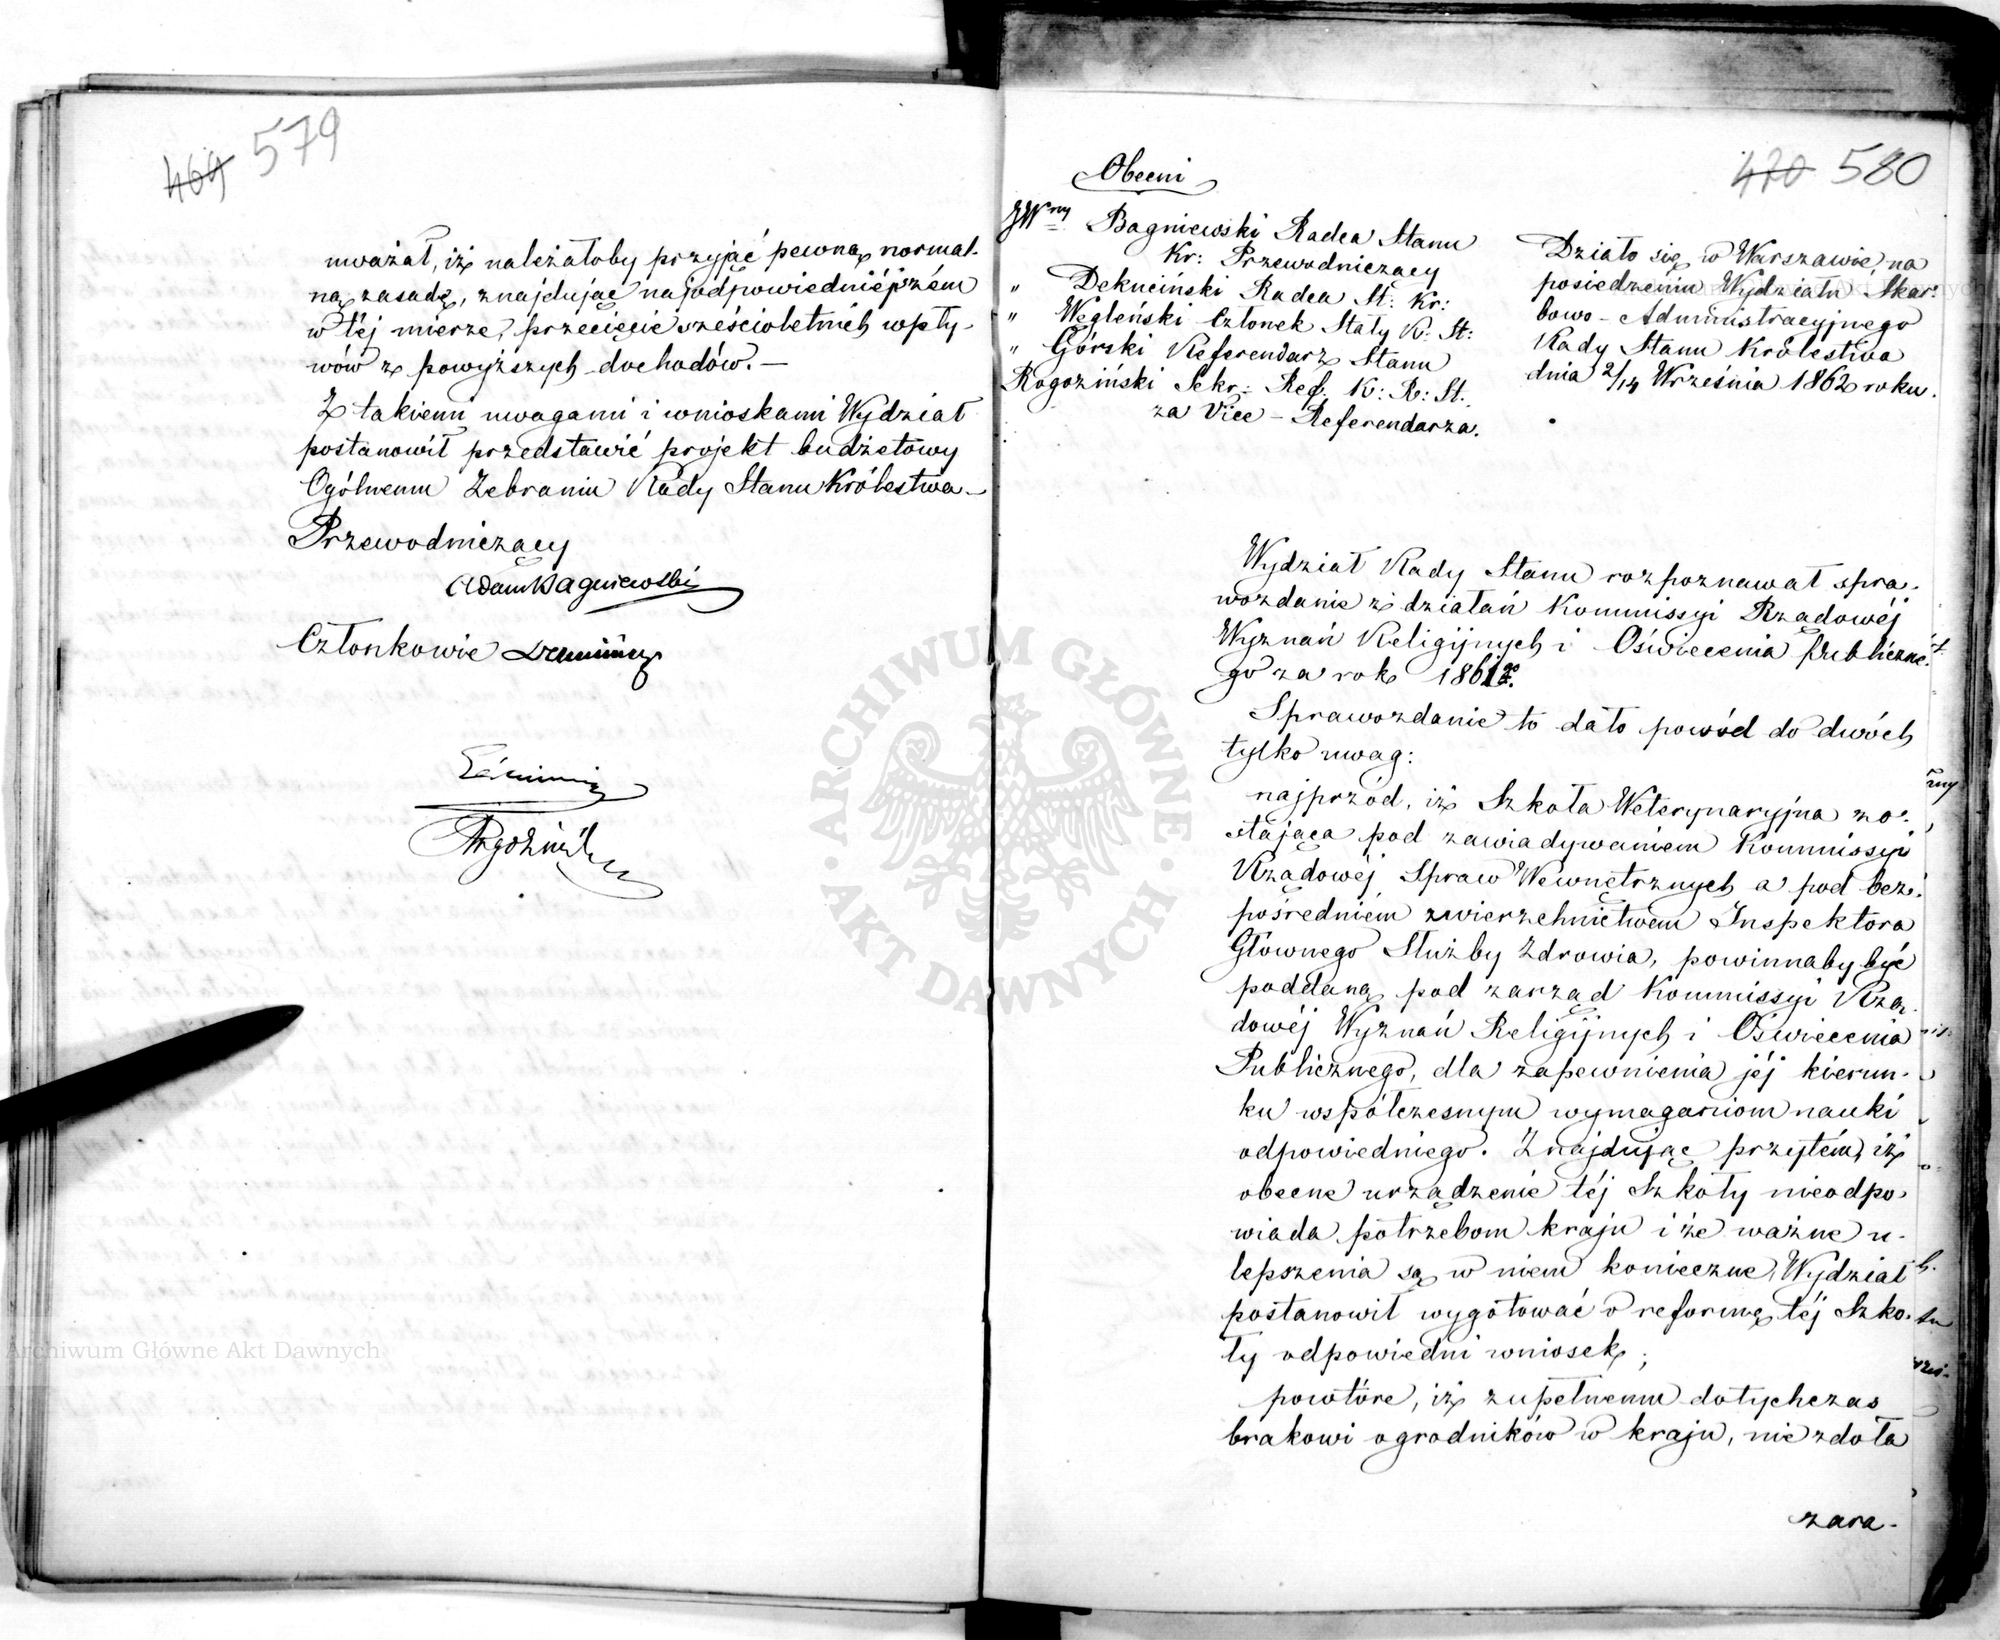 469 579
uważał, iż należałoby przyjąć pewną normal-
ną zasadę, znajdując najodpowiedniejszém
w téj mierze, przecięcie sześcioletnich wpły-
wów z powyższych dochodów. —
Z takiemi uwagami i wnioskami Wydział
postanowił przedstawić projekt budżetowy
Ogólnemu Zebraniu Rady Stanu Królestwa. —
Przewodniczący
Adam Bagniewski
Członkowie
Archiwum Główne Akt Dawnych
470 580
Obecni
JWny Bagniewski Radca Stanu
Kr: Przewodniczący
" Dekuciński Radca St: Kr:
" Węgleński Członek Stały R: St:
" Górski Referendarz Stanu
Rogoziński Sekr: Ref. K: R: St:
za Vice-Referendarza.
Działo się w Warszawie, na
posiedzeniu Wydziału Skar:
bowo-Administracyjnego
Rady Stanu Królestwa
dnia 2/14 Września 1862 roku.
Wydział Rady Stanu rozpoznawał spra-
wozdanie z działań Kommissyi Rządowéj
Wyznań Religijnych i Oświecenia Publiczne-
go za rok 1861.
Sprawozdanie to dało powód do dwóch
tylko uwag:
najprzód, iż Szkoła Weterynaryjna zo-
stająca pod zawiadywaniem Kommissyi
Rządowéj Spraw Wewnętrznych a pod bez-
pośredniém zwierzchnictwem Inspektora
Głównego Służby Zdrowia, powinnaby być
poddaną pod zarząd Kommissyi Rzą-
dowéj Wyznań Religijnych i Oświecenia
Publicznego, dla zapewnienia jéj kierun-
ku współczesnym wymaganiom nauki
odpowiedniego. Znajdując przytém, iż
obecne urządzenie téj Szkoły nieodpo-
wiada potrzebom kraju i że ważne u-
lepszenia są w niem konieczne, Wydział
postanowił wygotować o reformę téj Szko-
ły odpowiedni wniosek;
powtóre, iż zupełnemu dotychczas
brakowi ogrodników w kraju, nie zdoła
zara-
ARCHIWUM GŁÓWNE AKT DAWNYCH